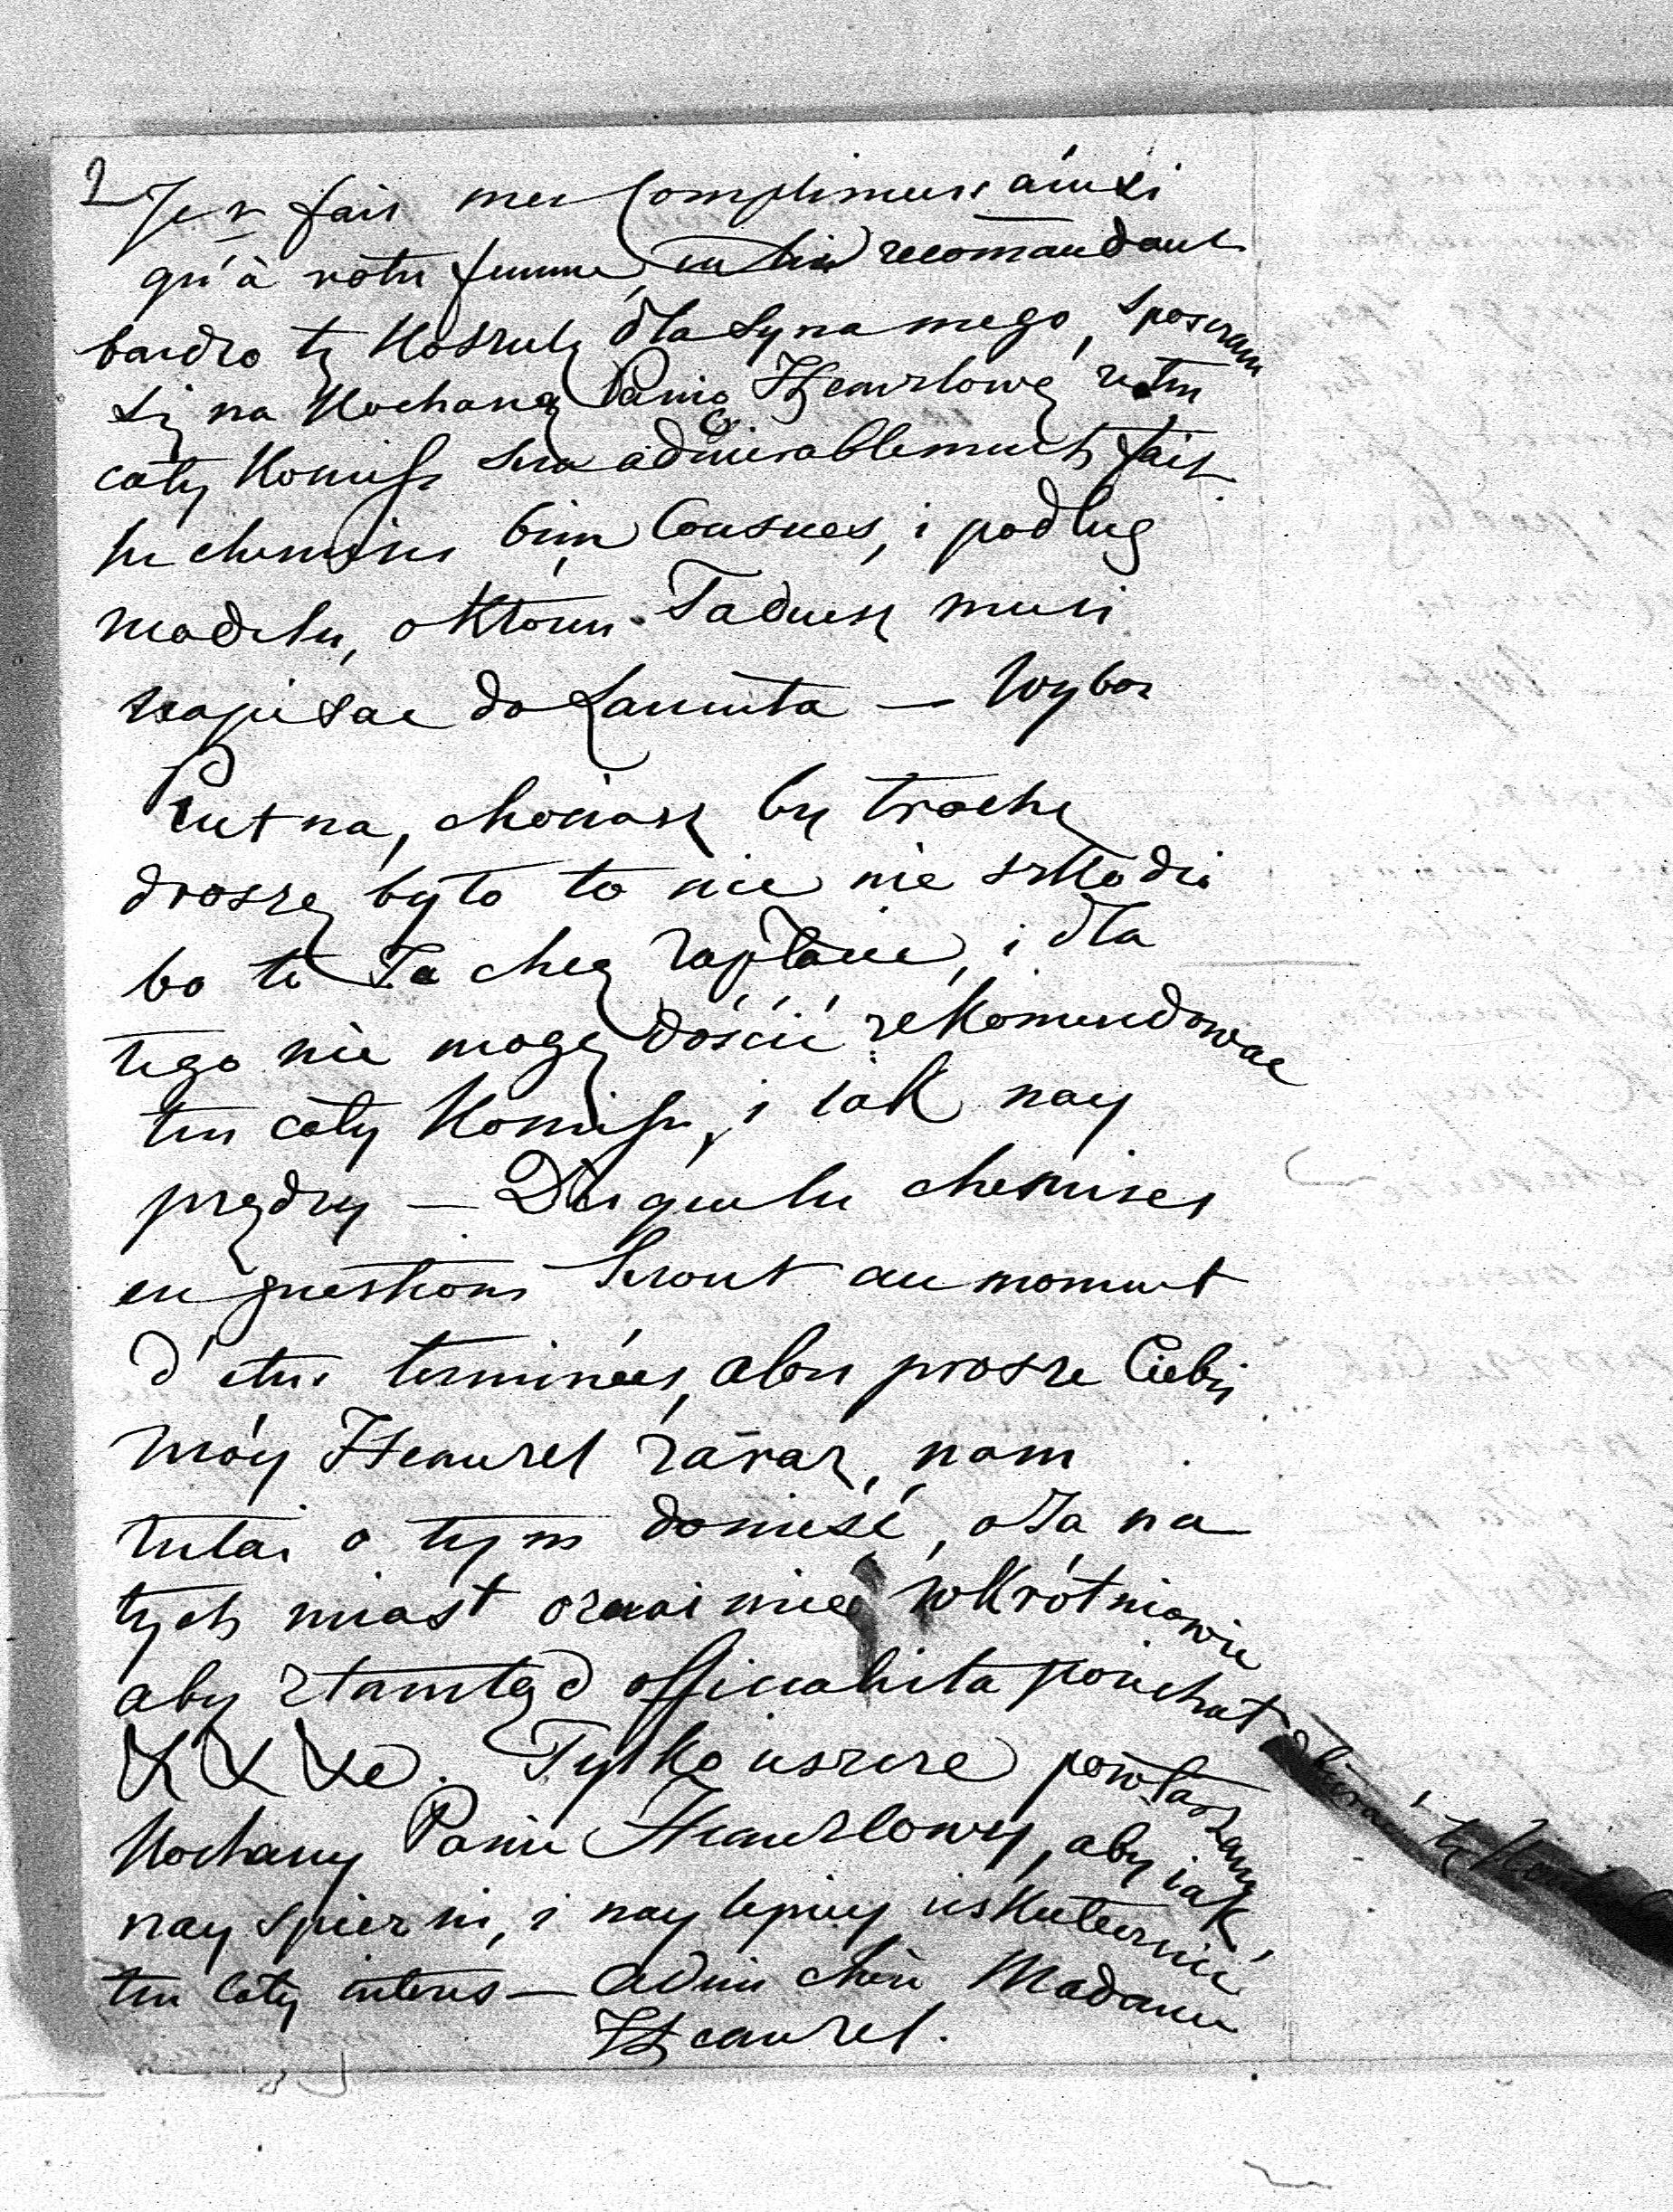 2 Je v. fais mes Complimens ainsi
qu'à votre femme, en lui recomandant
bardzo tę Koszulę dla Syna mego, spuszczam
się na Kochaną Panią Heaurlową że ten
cały Komiss sera admirablement fait
les chemises bien Cousues, i podług
modelu, o Którem Tadeusz musi
napisac do Łańcuta — Wybor
Płutna, chociasz by trochę
droszey było to nic nie szKodzi
bo to Ja chcę zapłacic, i dla
tego nie mogę dościć reKomendowac
ten cały Komiss, i iaK nay
prędzy — Dès que les chemises
en question Seront au moment
d'etre terminées, alors prosze Ciebie
móy Heaurel zaraz, nam
tutai o tym donieść, a Ja na
tych miast oznaimię wKrótniowie
aby ztamtąd officialista poiechał odbierać tę
XXXe. TylKo ieszcze powtarzam
Kochany Panie Heaurlowy, aby iaK
nay spieszni, i naylepiey usKutecznić
ten cały interes — Adieu chère Madame
Heaurel.